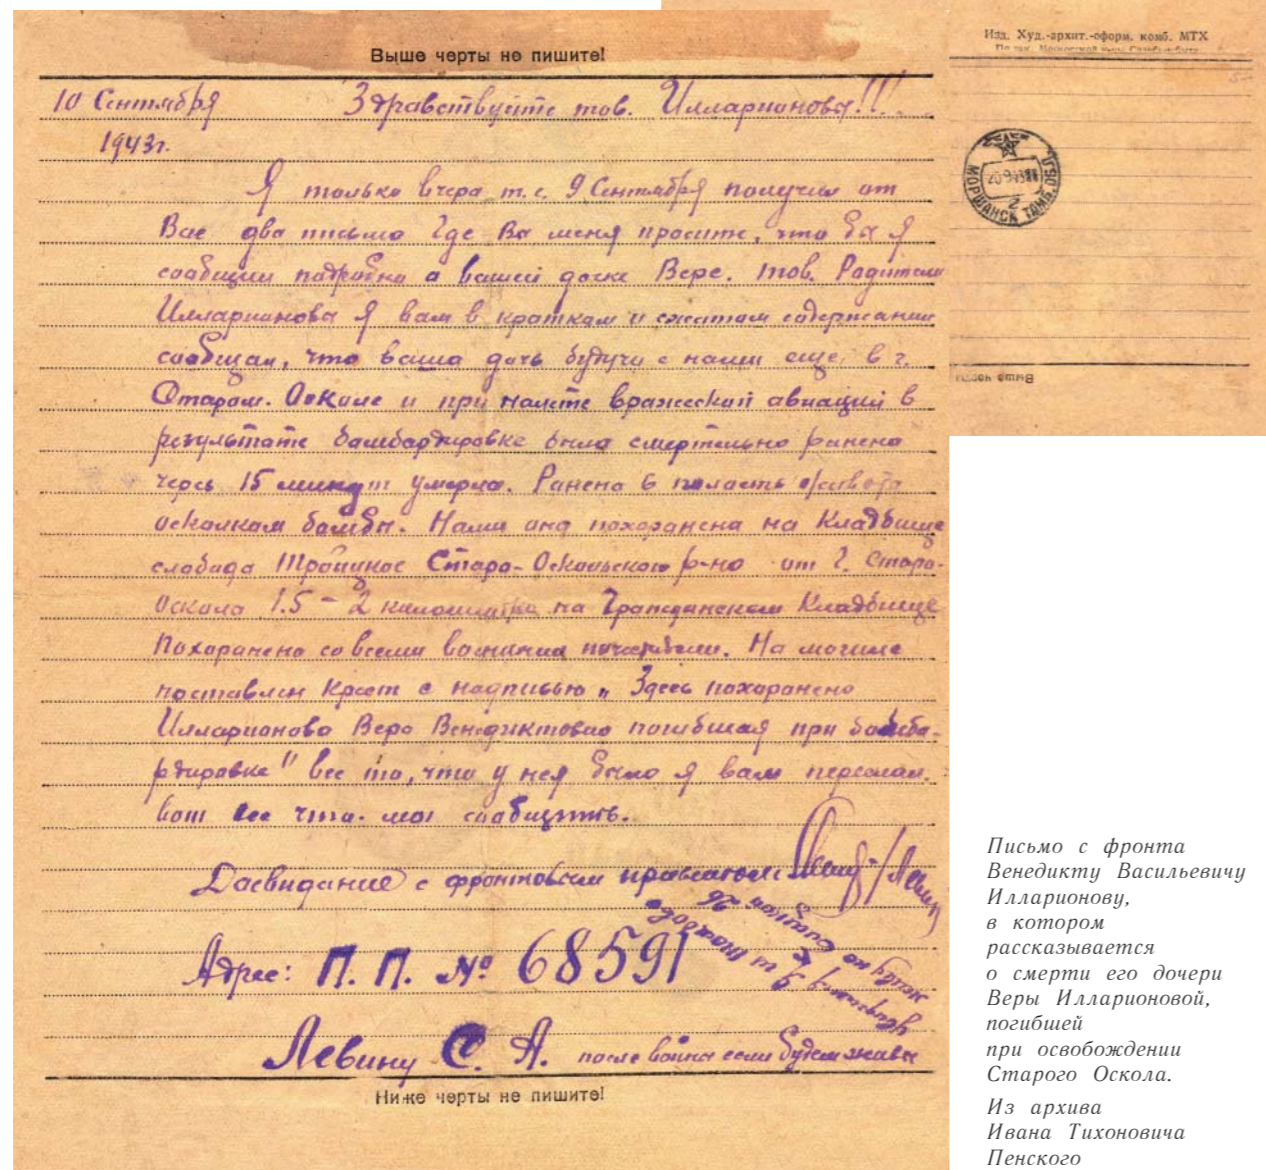 Выше черты не пишите!
10 Сентября Здравствуйте тов. Илларионовы!!!
1943г.
Я только вчера т.е. 9 Сентября получил от
Вас два письма Где Вы меня просите, что бы я
сообщил падробна а вашей доче Вере. тов. Радители
Илларионова Я вам в краткам и сжатам садержании
саабщаю, что ваша дочь будучи с нами еще в г.
Старом. Осколе и при налете вражеской авиации в
результате бамбардировке была смертельно ранена
через 15 минут умерла. Ранена в поласть живота
асколкам бамбы. Нами она похоранена на Кладбище
слабада Троицкое Старо-Оскольского р-на от г. Старо-
Оскола 1.5 - 2 километра на Гражданском Кладбище
Похаранена со всеми военными почестями. На могиле
поставлен Крест с надписью „ Здесь похаранена
Илларионова Вера Венедиктовна погибшая при бомба-
рдировке" все то, что у нея было я вам переслал.
вот все что. мог саабщить.
Досвидание с фронтовым приветом
Адрес: П. П. № 68591
Левину С. А. после войны если будем живы
Ниже черты не пишите!
Изд. Худ.-архит.-оформ. комб. МТХ
МОРШАНСК ТАМБ. ОБЛ.
20 9 43
2
Письмо с фронта
Венедикту Васильевичу
Илларионову,
в котором
рассказывается
о смерти его дочери
Веры Илларионовой,
погибшей
при освобождении
Старого Оскола.
Из архива
Ивана Тихоновича
Пенского